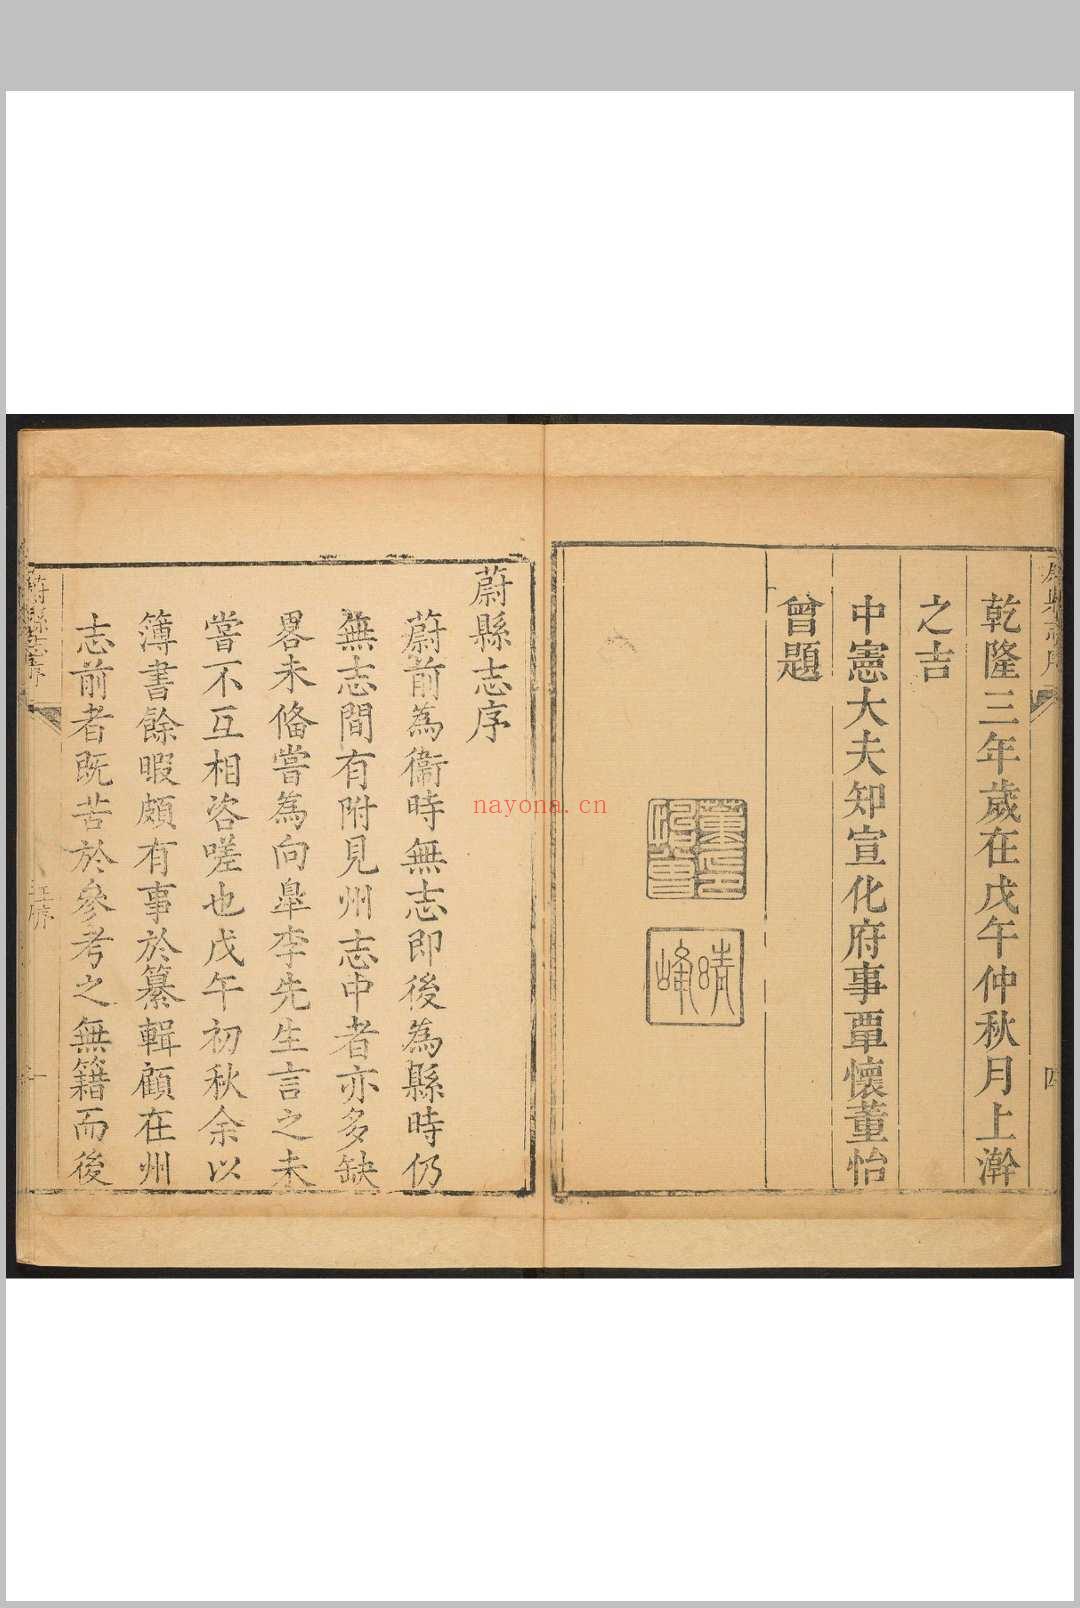 乾隆三年歲在戊午仲秋月上澣
之吉
中憲大夫知宣化府事覃懷董怡
曾題
董怡曾印
晴峰
四
蔚縣志序
蔚前為衞時無志即後為縣時仍
無志間有附見州志中者亦多缺
畧未俻嘗為向皐李先生言之未
嘗不互相咨嗟也戊午初秋余以
簿書餘暇頗有事於纂輯顧在州
志前者既苦於參考之無籍而後
蔚縣志序
王序
一
nayona.cn